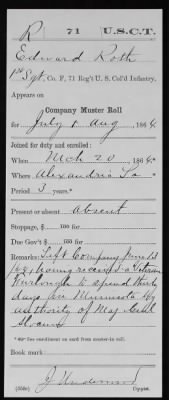 R 71 U.S.C.T.
Edward Roth
1st Sgt, Co. F, 71 Reg't U.S. Col'd Infantry.
Appears on
Company Muster Roll
for July & Aug, 1864
Joined for duty and enrolled:
When Mch 20, 1864 *
Where Alexandria La *
Period 3 years.*
Present or absent absent
Stoppage, $ 100 for
Due Gov't $ 100 for
Remarks: Left Company June 18
/64, having received a Veteran
Furlough to spend thirty
days in Minnesota by
authority of Maj Genl
Slocum
* See enrollment on card from muster-in roll.
Book mark:
(358c) Copyist.